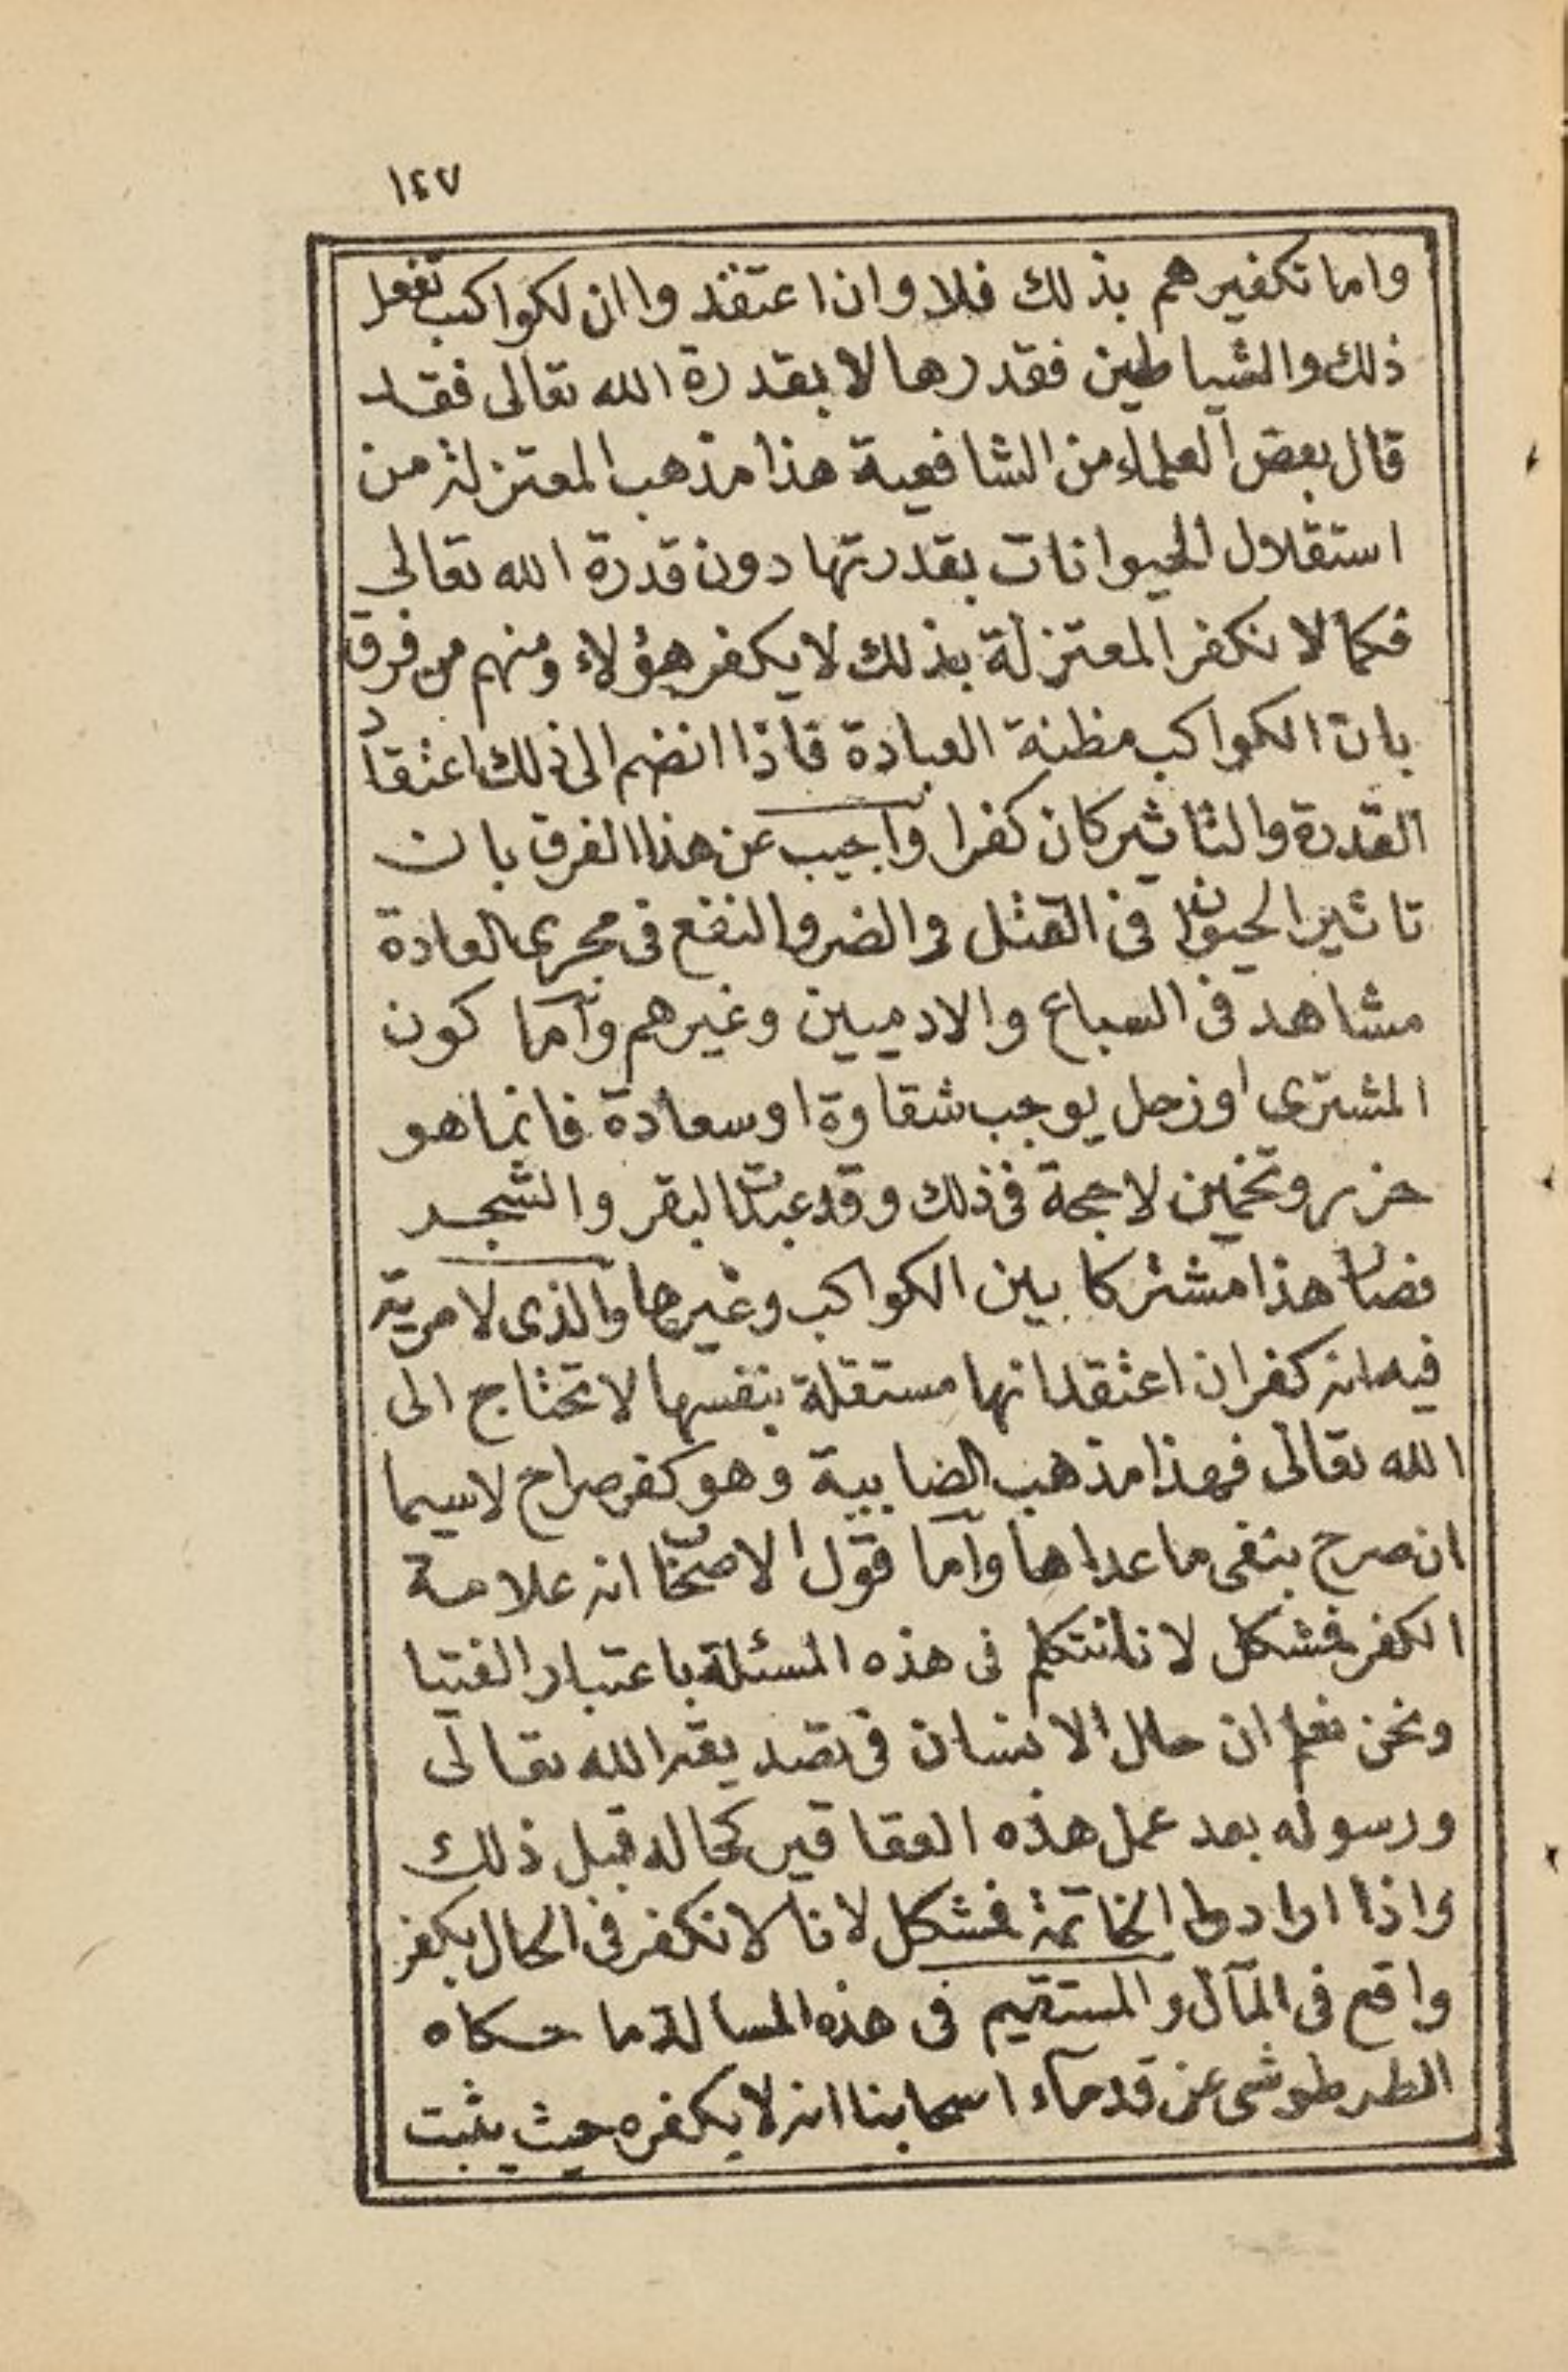 ١٤٧
واما تكفيرهم بذلك فلا وان اعتقدوا ان لكواكب تفعل
ذلك والشياطين فقدرها لا بقدرة الله تعالى فقد
قال بعض العلماء من الشافعية هذا مذهب المعتزلة من
استقلال الحيوانات بقدرتها دون قدرة الله تعالى
فكما لا نكفر المعتزلة بذلك لا يكفر هؤلاء ومنهم من فرق
بان الكواكب مظنة العبادة فاذا انضم الى ذلك اعتقاد
القدرة والتاثير كان كفرا واجيب عن هذا الفرق بان
تاثير الحيوان فى القتل والضر والنفع فى مجرى العادة
مشاهد فى السباع والادميين وغيرهم وأما كون
المشترى او زحل يوجب شقاوة او سعادة فانما هو
حزر وتخمين لا حجة فى ذلك وقد عبدت البقر والشجر
فصار هذا مشتركا بين الكواكب وغيرها والذى لا مرية
فيه انه كفر ان اعتقد انها مستقلة بنفسها لا تحتاج الى
الله تعالى فهذا مذهب الضابية وهو كفر صراح لاسيما
ان صرح بنفى ما عداها وأما قول الاصحاب انه علامة
الكفر فمشكل لانا نتكلم فى هذه المسئلة باعتبار الفتيا
ونحن نعلم ان حال الانسان فى تصديقه الله تعالى
ورسوله بعد عمل هذه العقاقير كحاله قبل ذلك
واذا ارادوا الخاتمة فمشكل لانا لا نكفر فى الحال بكفر
واقع فى المآل والمستقيم فى هذه المسالة ما حكاه
الطرطوشى عن قدمآء اصحابنا انه لا يكفره حيث يثبت